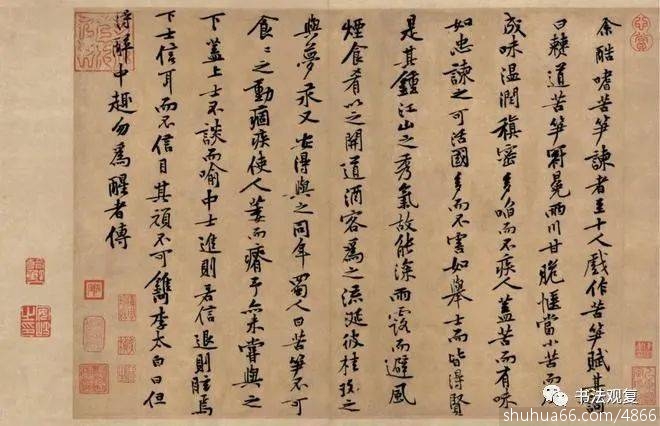 余酷嗜苦笋諫者至十人戲作苦笋賦其詞
曰僰道苦笋冠冕兩川甘脆愜當小苦而反
成味温潤稹密多啗而不疾人蓋苦而有味
如忠諫之可活國多而不害如舉士而皆得賢
是其鍾江山之秀氣故能深雨露而避風
煙食肴以之開道酒客為之流涎彼桂之
與夢汞又安得與之同年蜀人曰苦笋不可
食〻之動痼疾使人萎而瘠予亦未嘗與之
下蓋上士不談而喻中士進則若信退則眩焉
下士信耳而不信目其頑不可鐫李太白曰但
得醉中趣勿為醒者傳
书法观复
shuhua66.com/4866